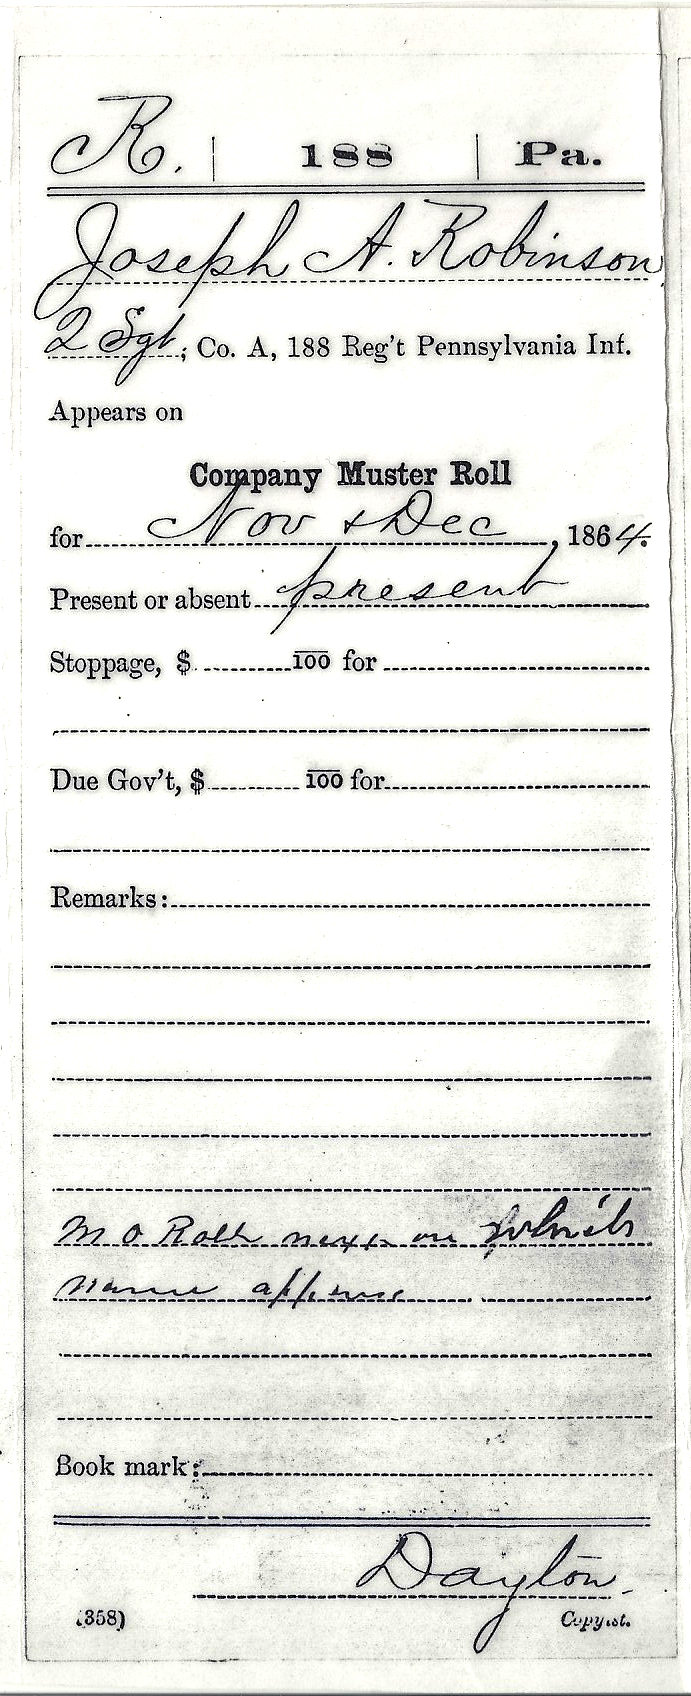 R. | 188 | Pa.
Joseph A. Robinson
2 Sgt; Co. A, 188 Reg't Pennsylvania Inf.
Appears on
Company Muster Roll
for Nov & Dec, 1864.
Present or absent present
Stoppage, $ 100 for
Due Gov't, $ 100 for
Remarks:
M O Roll next on which
name appears
Book mark:
Dayton.
(358) Copyist.